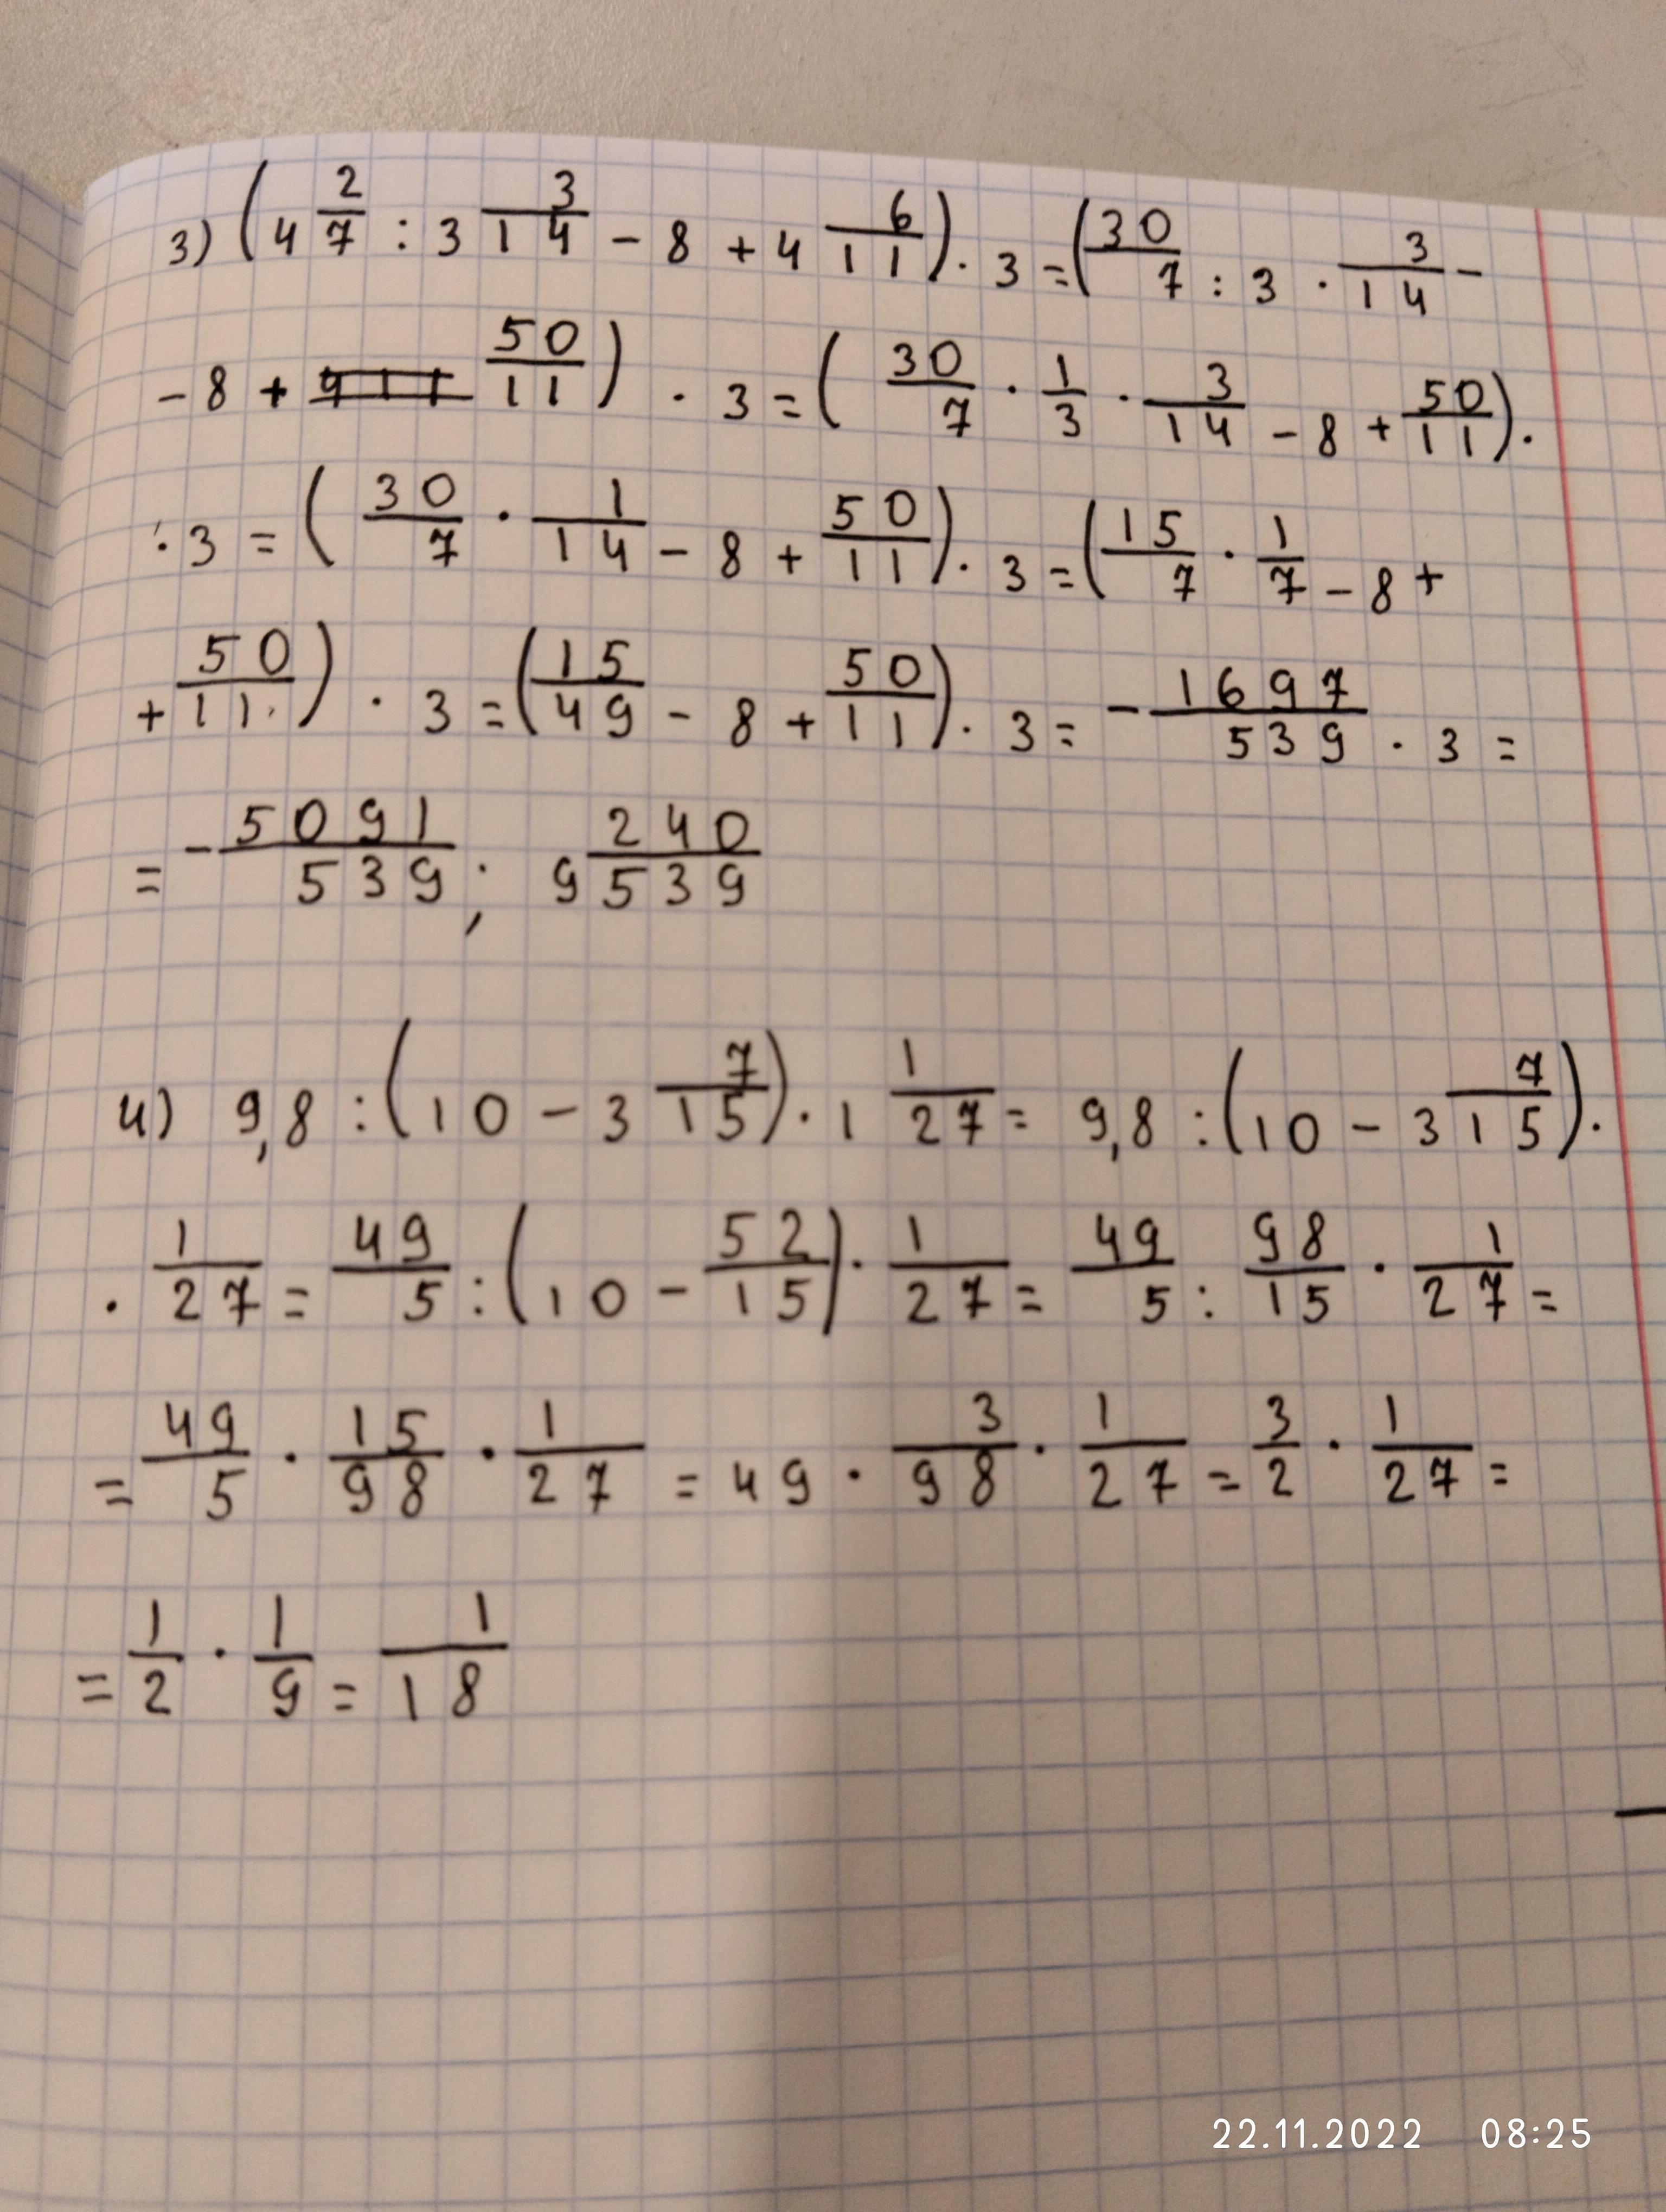 3) (4 2/7 : 3 3/14 - 8 + 4 6/11) · 3 = (30/7 : 3 · 3/14 -
- 8 + 50/11) · 3 = (30/7 · 1/3 · 3/14 - 8 + 50/11) ·
· 3 = (30/7 · 1/14 - 8 + 50/11) · 3 = (15/7 · 1/7 - 8 +
+ 50/11) · 3 = (15/49 - 8 + 50/11) · 3 = - 1697/539 · 3 =
= - 5091/539 ; 9 240/539
4) 9,8 : (10 - 3 7/15) · 1 1/27 = 9,8 : (10 - 3 7/15) ·
· 1/27 = 49/5 : (10 - 52/15) · 1/27 = 49/5 : 98/15 · 1/27 =
= 49/5 · 15/98 · 1/27 = 49 · 3/98 · 1/27 = 3/2 · 1/27 =
= 1/2 · 1/9 = 1/18
22.11.2022 08:25